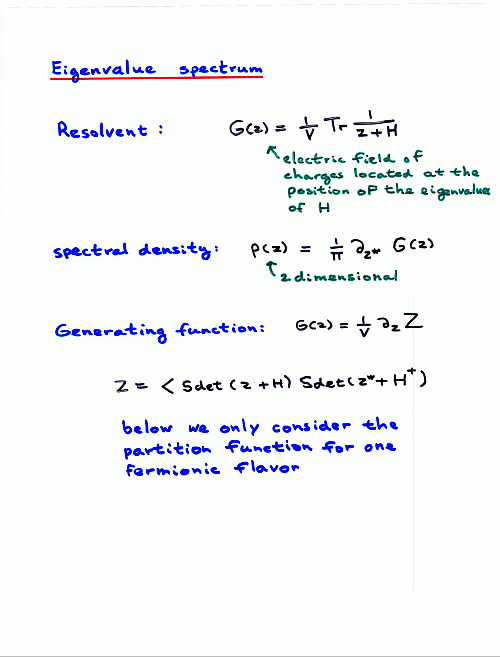 Eigenvalue spectrum
Resolvent : G(z) = 1/V Tr 1/(z+H)
electric field of
charges located at the
position of the eigenvalues
of H
spectral density: ρ(z) = 1/π ∂_z* G(z)
2 dimensional
Generating function: G(z) = 1/V ∂_z Z
Z = < Sdet (z+H) Sdet(z*+H†)
below we only consider the
partition function for one
fermionic flavor